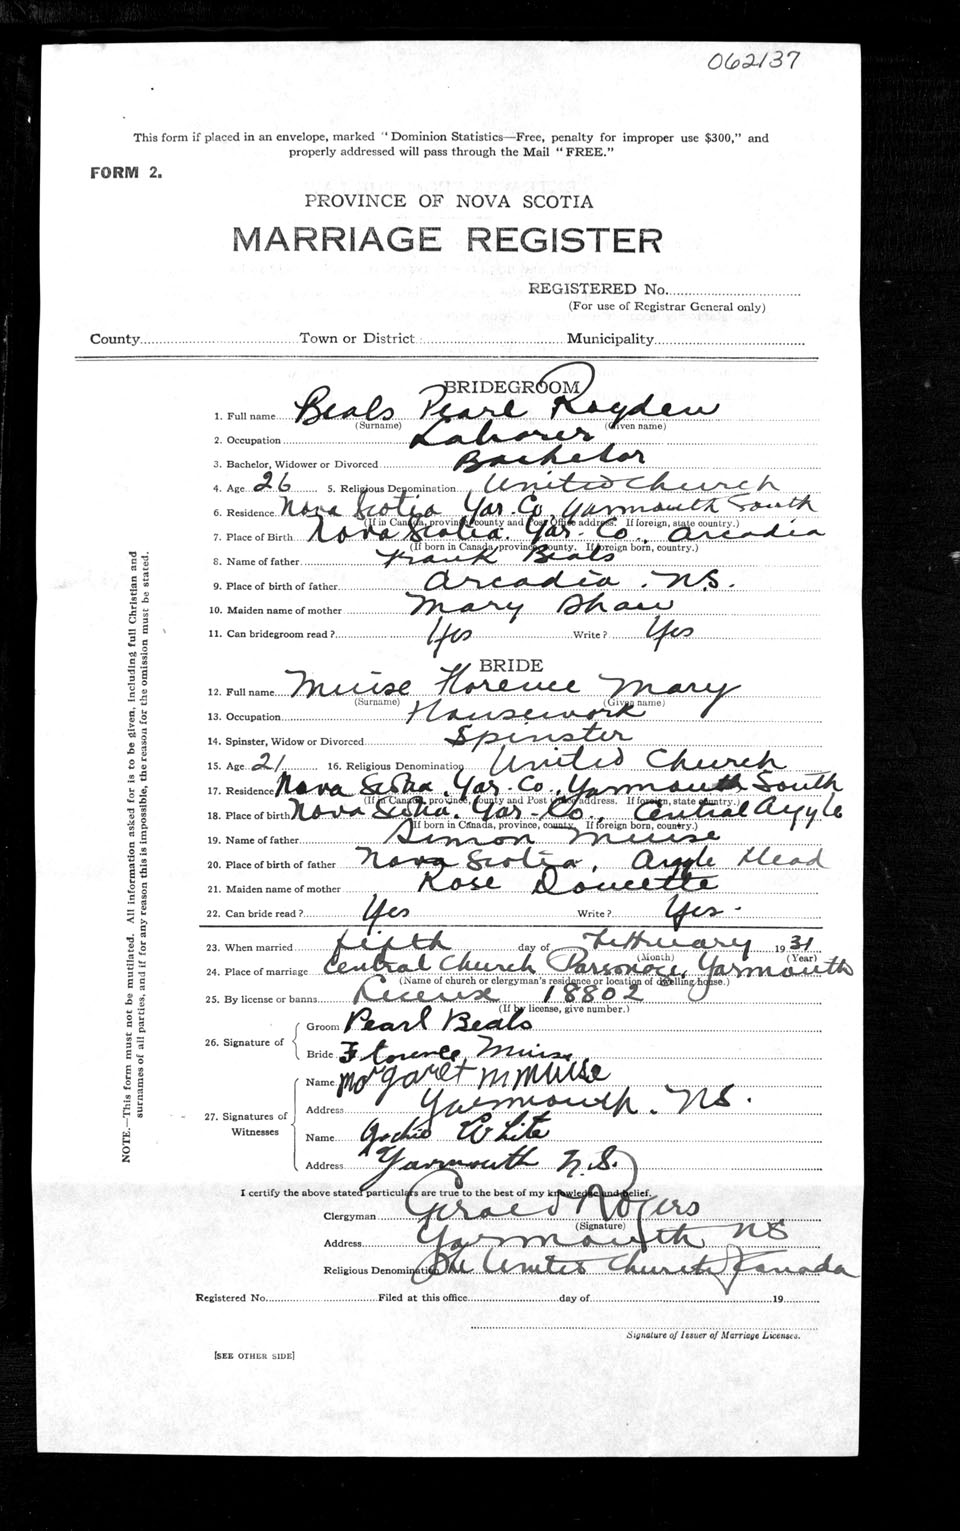 062137
This form if placed in an envelope, marked "Dominion Statistics—Free, penalty for improper use $300," and
properly addressed will pass through the Mail "FREE."
FORM 2.
PROVINCE OF NOVA SCOTIA
MARRIAGE REGISTER
REGISTERED No.
(For use of Registrar General only)
County Town or District Municipality
BRIDEGROOM
1. Full name Beals Pearl Royden
(Surname) (Given name)
2. Occupation Laborer
3. Bachelor, Widower or Divorced Bachelor
4. Age 26 5. Religious Denomination United Church
6. Residence Nova Scotia Yar. Co. Yarmouth South
(If in Canada, province, county and Post Office address. If foreign, state country.)
7. Place of Birth Nova Scotia. Yar. Co., Arcadia
(If born in Canada, province, county. If foreign born, country.)
8. Name of father Frank Beals
9. Place of birth of father Arcadia. N.S.
10. Maiden name of mother Mary Shaw
11. Can bridegroom read? Yes Write? Yes
BRIDE
12. Full name Muise Florence Mary
(Surname) (Given name)
13. Occupation Housework
14. Spinster, Widow or Divorced Spinster
15. Age 21 16. Religious Denomination United Church
17. Residence Nova Scotia, Yar. Co., Yarmouth South
(If in Canada, province, county and Post Office address. If foreign, state country.)
18. Place of birth Nova Scotia. Yar. Co., Central Argyle
(If born in Canada, province, county. If foreign born, country.)
19. Name of father Simon Muise
20. Place of birth of father Nova Scotia, Argyle Head
21. Maiden name of mother Rose Doucette
22. Can bride read? Yes Write? Yes.
23. When married fifth day of February 1931
(Month) (Year)
24. Place of marriage Central Church Parsonage, Yarmouth
(Name of church or clergyman's residence or location of dwelling house.)
25. By license or banns License 18802
(If by license, give number.)
26. Signature of
Groom Pearl Beals
Bride Florence Muise
27. Signatures of Witnesses
Name Margaret M Muise
Address Yarmouth. N.S.
Name Archie White
Address Yarmouth N.S.
I certify the above stated particulars are true to the best of my knowledge and belief.
Clergyman Gerald Rogers
(Signature)
Address Yarmouth NS
Religious Denomination The United Church of Canada
Registered No. Filed at this office day of 19
Signature of Issuer of Marriage Licenses.
[SEE OTHER SIDE]
NOTE.—This form must not be mutilated. All information asked for is to be given, including full Christian and
surnames of all parties, and if for any reason this is impossible, the reason for the omission must be stated.